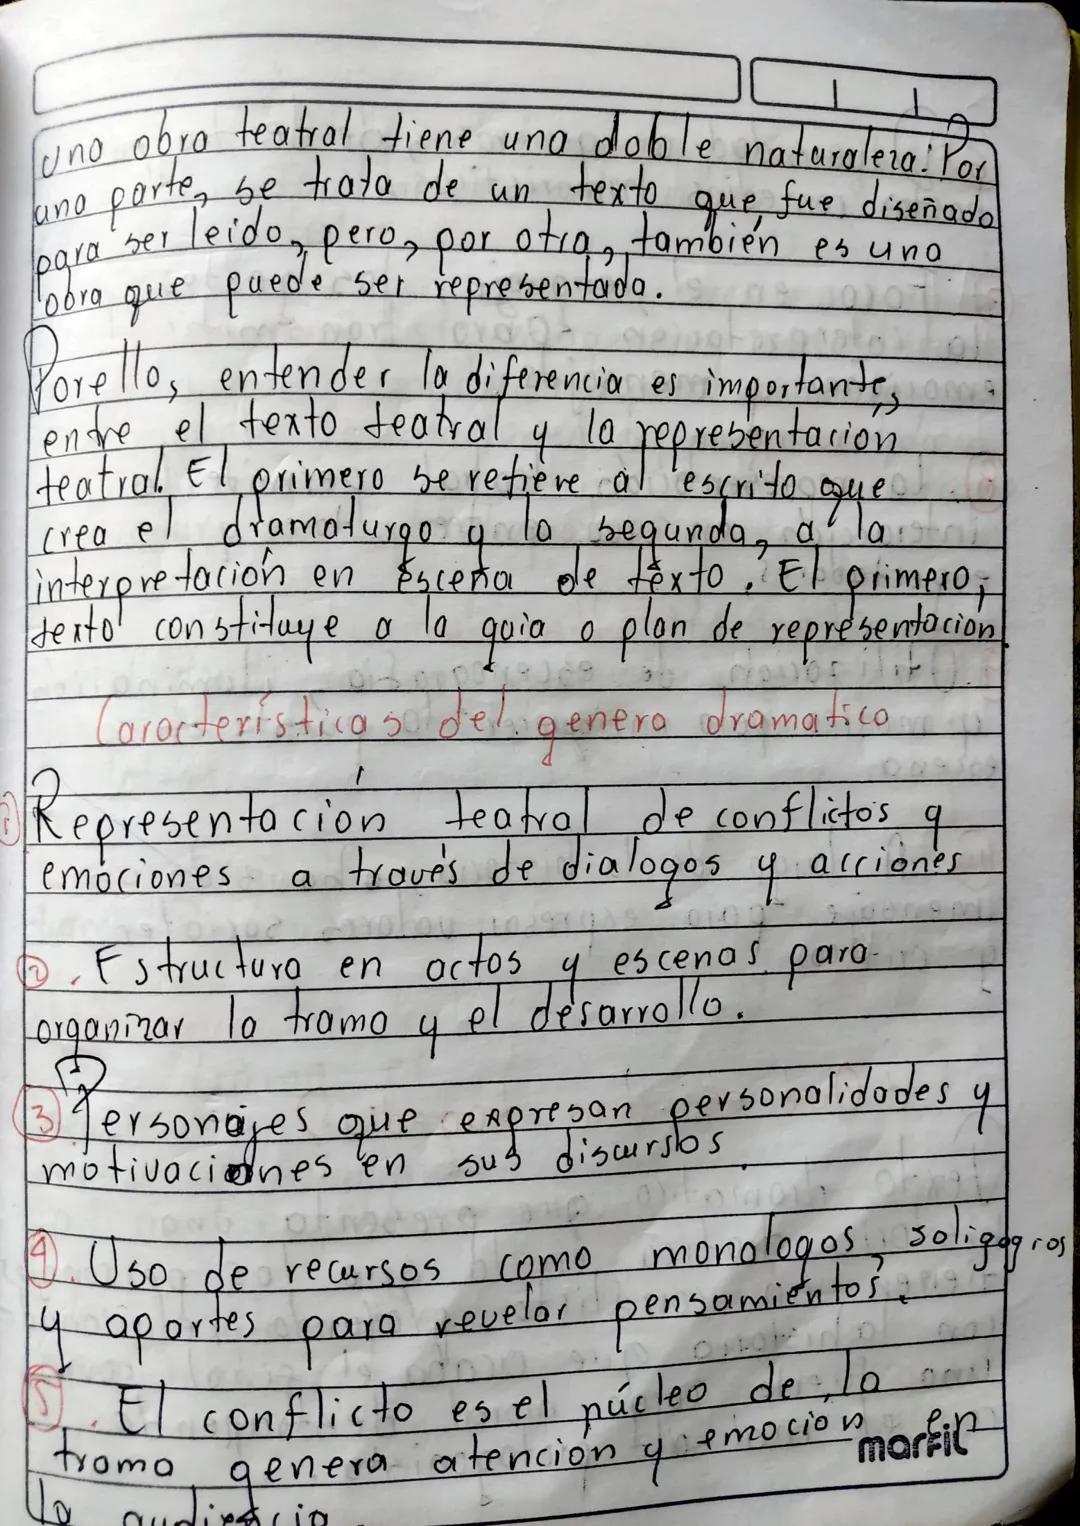 Una obra teatral tiene una doble naturaleza: Por
una parte, se trata de un texto que fue diseñado
para ser leido, pero, por otra, también es una
obra que puede ser representada.
Por ello, entender la diferencia es importante,
entre el texto teatral y la representacion
teatral. El primero se refiere al escrito que
crea el dramaturgo y la segunda, a la
interpretación en escena de texto. El primero,
texto constituye a la guia o plan de representacion
Características del genero dramatico
1 Representación teatral de conflictos y
emociones a través de dialogos y acciones
2. Estructura en actos y escenas para
organizar la trama y el desarrollo.
3 Personajes que expresan personalidades y
motivaciones en sus discursos.
4. Uso de recursos como monologos, soligogros
y aportes para revelar pensamientos.
5. El conflicto es el núcleo de la
trama genera atención y emoción en
marfil
la audiencia